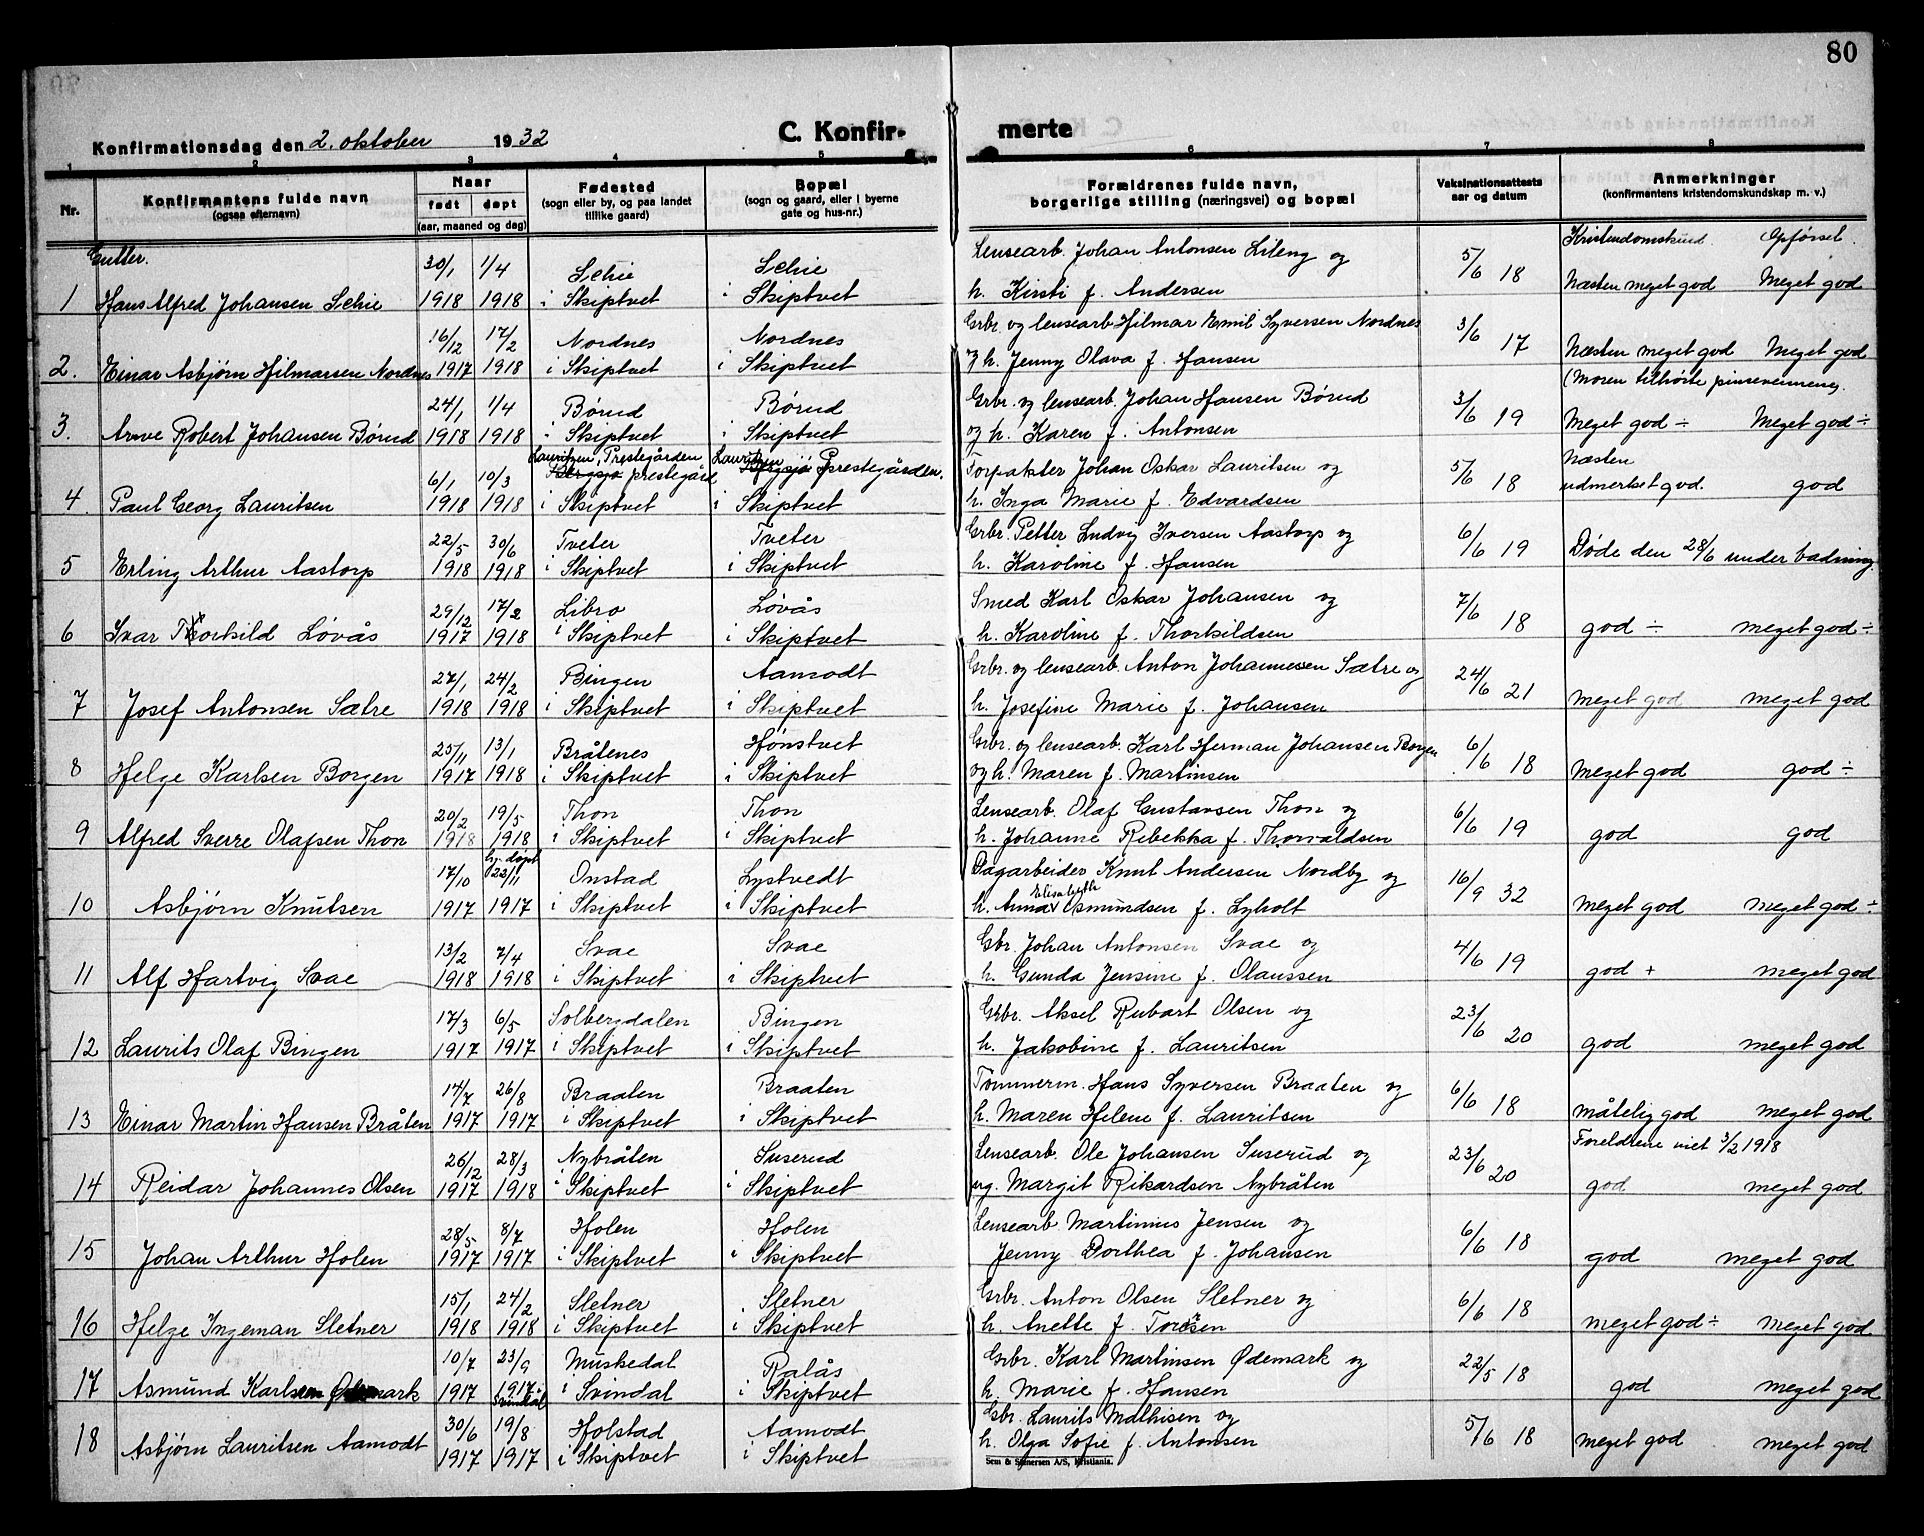 80
Konfirmationsdag den 2. oktober 1932
C. Konfir-
merte
1 2 3 4 5 6 7 8
Nr.
Konfirmantens fulde navn
(ogsaa efternavn)
Naar
født døpt
(aar, maaned og dag)
Fødested
(sogn eller by, og paa landet
tillike gaard)
Bopæl
(sogn og gaard, eller i byerne
gate og hus-nr.)
Forældrenes fulde navn,
borgerlige stilling (næringsvei) og bopæl
Vaksinationsattests
aar og datum
Anmerkninger
(konfirmantens kristendomskundskap m. v.)
Gutter.
Kristendomskund. Opførsel.
30/1 1/4 Schie Schie Lensearb. Johan Antonsen Lileng og 5/6 18
1 Hans Alfred Johansen Schie 1918 1918 i Skiptvet i Skiptvet h. Kirsti f. Andersen Næsten meget god Meget god
16/12 17/2 Nordnes Nordnes Grbr. og lensearb. Hilmar Emil Syversen Nordnes 3/6 17
2. Einar Asbjørn Hilmarsen Nordnes 1917 1918 i Skiptvet i Skiptvet og h. Jenny Olava f. Hansen Næsten meget god Meget god
(Moren tilhørte pinsevennene).
24/1 1/4 Børud Børud Grbr. og lensearb. Johan Hansen Børud 3/6 19
3. Arne Robert Johansen Børud 1918 1918 i Skiptvet i Skiptvet og h. Karen f. Antonsen Meget god ÷ Meget god ÷
Lauritzen, Prestegården Lauritzen
6/1 10/3 prestegård Prestegården. Forpakter Johan Oskar Lauritsen og 5/6 18 Næsten
4. Paul Georg Lauritsen 1918 1918 i Skiptvet i Skiptvet h. Inga Marie f. Edvardsen udmerket god. god
22/5 30/6 Tveter Tveter Grbr. Petter Ludvig Iversen Aastorp og 6/6 19
5 Erling Arthur Aastorp 1918 1918 i Skiptvet i Skiptvet h. Karoline f. Hansen Døde den 28/6 under badning.
29/12 17/2 Libro Løvås Smed Karl Oskar Johansen og 7/6 18
6 Ivar Torkild Løvås 1917 1918 i Skiptvet i Skiptvet h. Karoline f. Thorkildsen god ÷ meget god ÷
27/1 24/2 Bingen Aamodt Grbr. og lensearb. Anton Johannesen Sætre og 24/6 21
7 Josef Antonsen Sætre 1918 1918 i Skiptvet i Skiptvet h. Josefine Marie f. Johansen meget god meget god
25/11 13/1 Bråtenes Hønstvet Grbr. og lensearb. Karl Herman Johansen Borgen 6/6 18
8 Helge Karlsen Borgen 1917 1918 i Skiptvet i Skiptvet og h. Maren f. Martinsen meget god god ÷
20/2 19/5 Thon Thon Lensearb. Olaf Gustavsen Thon og 6/6 19
9 Alfred Sverre Olafsen Thon 1918 1918 i Skiptvet i Skiptvet h. Johanne Rebekka f. Thorvaldsen god god
hj. døpt
17/10 23/11 Onstad Lystvedt Dagarbeider Knut Andersen Nordby og 16/9 32
Elisabeth
10 Asbjørn Knutsen 1917 1917 i Skiptvet i Skiptvet h. Anna Asmundsen f. Lyholt meget god meget god ÷
13/2 7/4 Svae Svae Gbr. Johan Antonsen Svae og 4/6 19
11 Alf Hartvig Svae 1918 1918 i Skiptvet i Skiptvet h. Gunda Jensine f. Olaussen god + meget god
17/3 6/5 Solbergdalen Bingen Grbr. Aksel Rubart Olsen og 23/6 20
12 Laurits Olaf Bingen 1917 1917 i Skiptvet i Skiptvet h. Jakobine f. Lauritsen god meget god
14/7 26/8 Braaten Braaten Tømmerm. Hans Syversen Braaten og 6/6 18
13 Einar Martin Hansen Bråten 1917 1917 i Skiptvet i Skiptvet h. Maren Helene f. Lauritsen måtelig god meget god
Foreldrene viet 3/2 1918
26/12 28/3 Nybråten Suserud Lensearb. Ole Johansen Suserud og 23/6 20
14 Reidar Johannes Olsen 1917 1918 i Skiptvet i Skiptvet ug. Margit Rikardsen Nybråten god meget god
28/5 8/7 Holen Holen Lensearb. Martinius Jensen og 6/6 18
15 Johan Arthur Holen 1917 1917 i Skiptvet i Skiptvet Jenny Dorthea f. Johansen god meget god
15/1 24/2 Sletner Sletner Grbr. Anton Olsen Sletner og 6/6 18
16 Helge Ingeman Sletner 1918 1918 i Skiptvet i Skiptvet h. Anette f. meget god ÷ meget god
10/7 23/9 Muskedal Ralås Grbr. Karl Martinsen Ødemark og 22/5 18
17 Asmund Karlsen Ødemark 1917 1917 i Svindal i Svindal i Skiptvet h. Marie f. Hansen god meget god
30/6 19/8 Holstad Aamodt Gbr. Laurits Mathisen og 5/6 18
18 Asbjørn Lauritsen Aamodt 1917 1917 i Skiptvet i Skiptvet h. Olga Sofie f. Antonsen meget god meget god
Sem & Stenersen A/S, Kristiania.